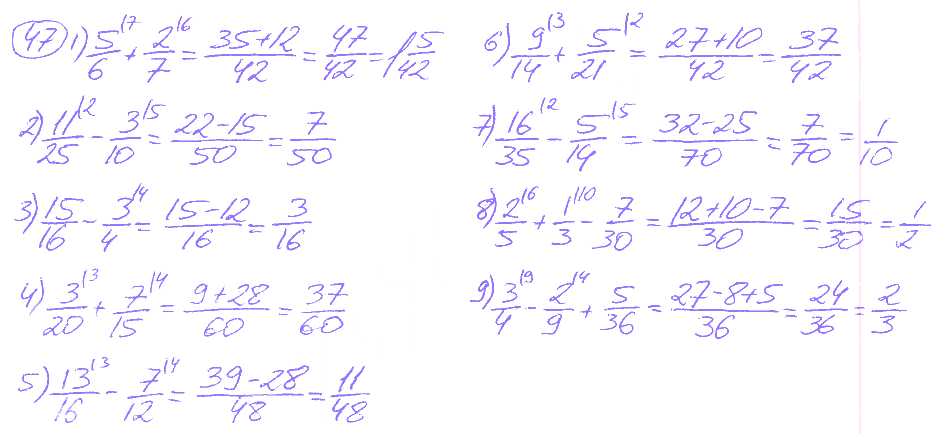 47 1) 5/6 |7 + 2/7 |6 = (35+12)/42 = 47/42 = 1 5/42
2) 11/25 |2 − 3/10 |5 = (22−15)/50 = 7/50
3) 15/16 − 3/4 |4 = (15−12)/16 = 3/16
4) 3/20 |3 + 7/15 |4 = (9+28)/60 = 37/60
5) 13/16 |3 − 7/12 |4 = (39−28)/48 = 11/48
6) 9/14 |3 + 5/21 |2 = (27+10)/42 = 37/42
7) 16/35 |2 − 5/14 |5 = (32−25)/70 = 7/70 = 1/10
8) 2/5 |6 + 1/3 |10 − 7/30 = (12+10−7)/30 = 15/30 = 1/2
9) 3/4 |9 − 2/9 |4 + 5/36 = (27−8+5)/36 = 24/36 = 2/3